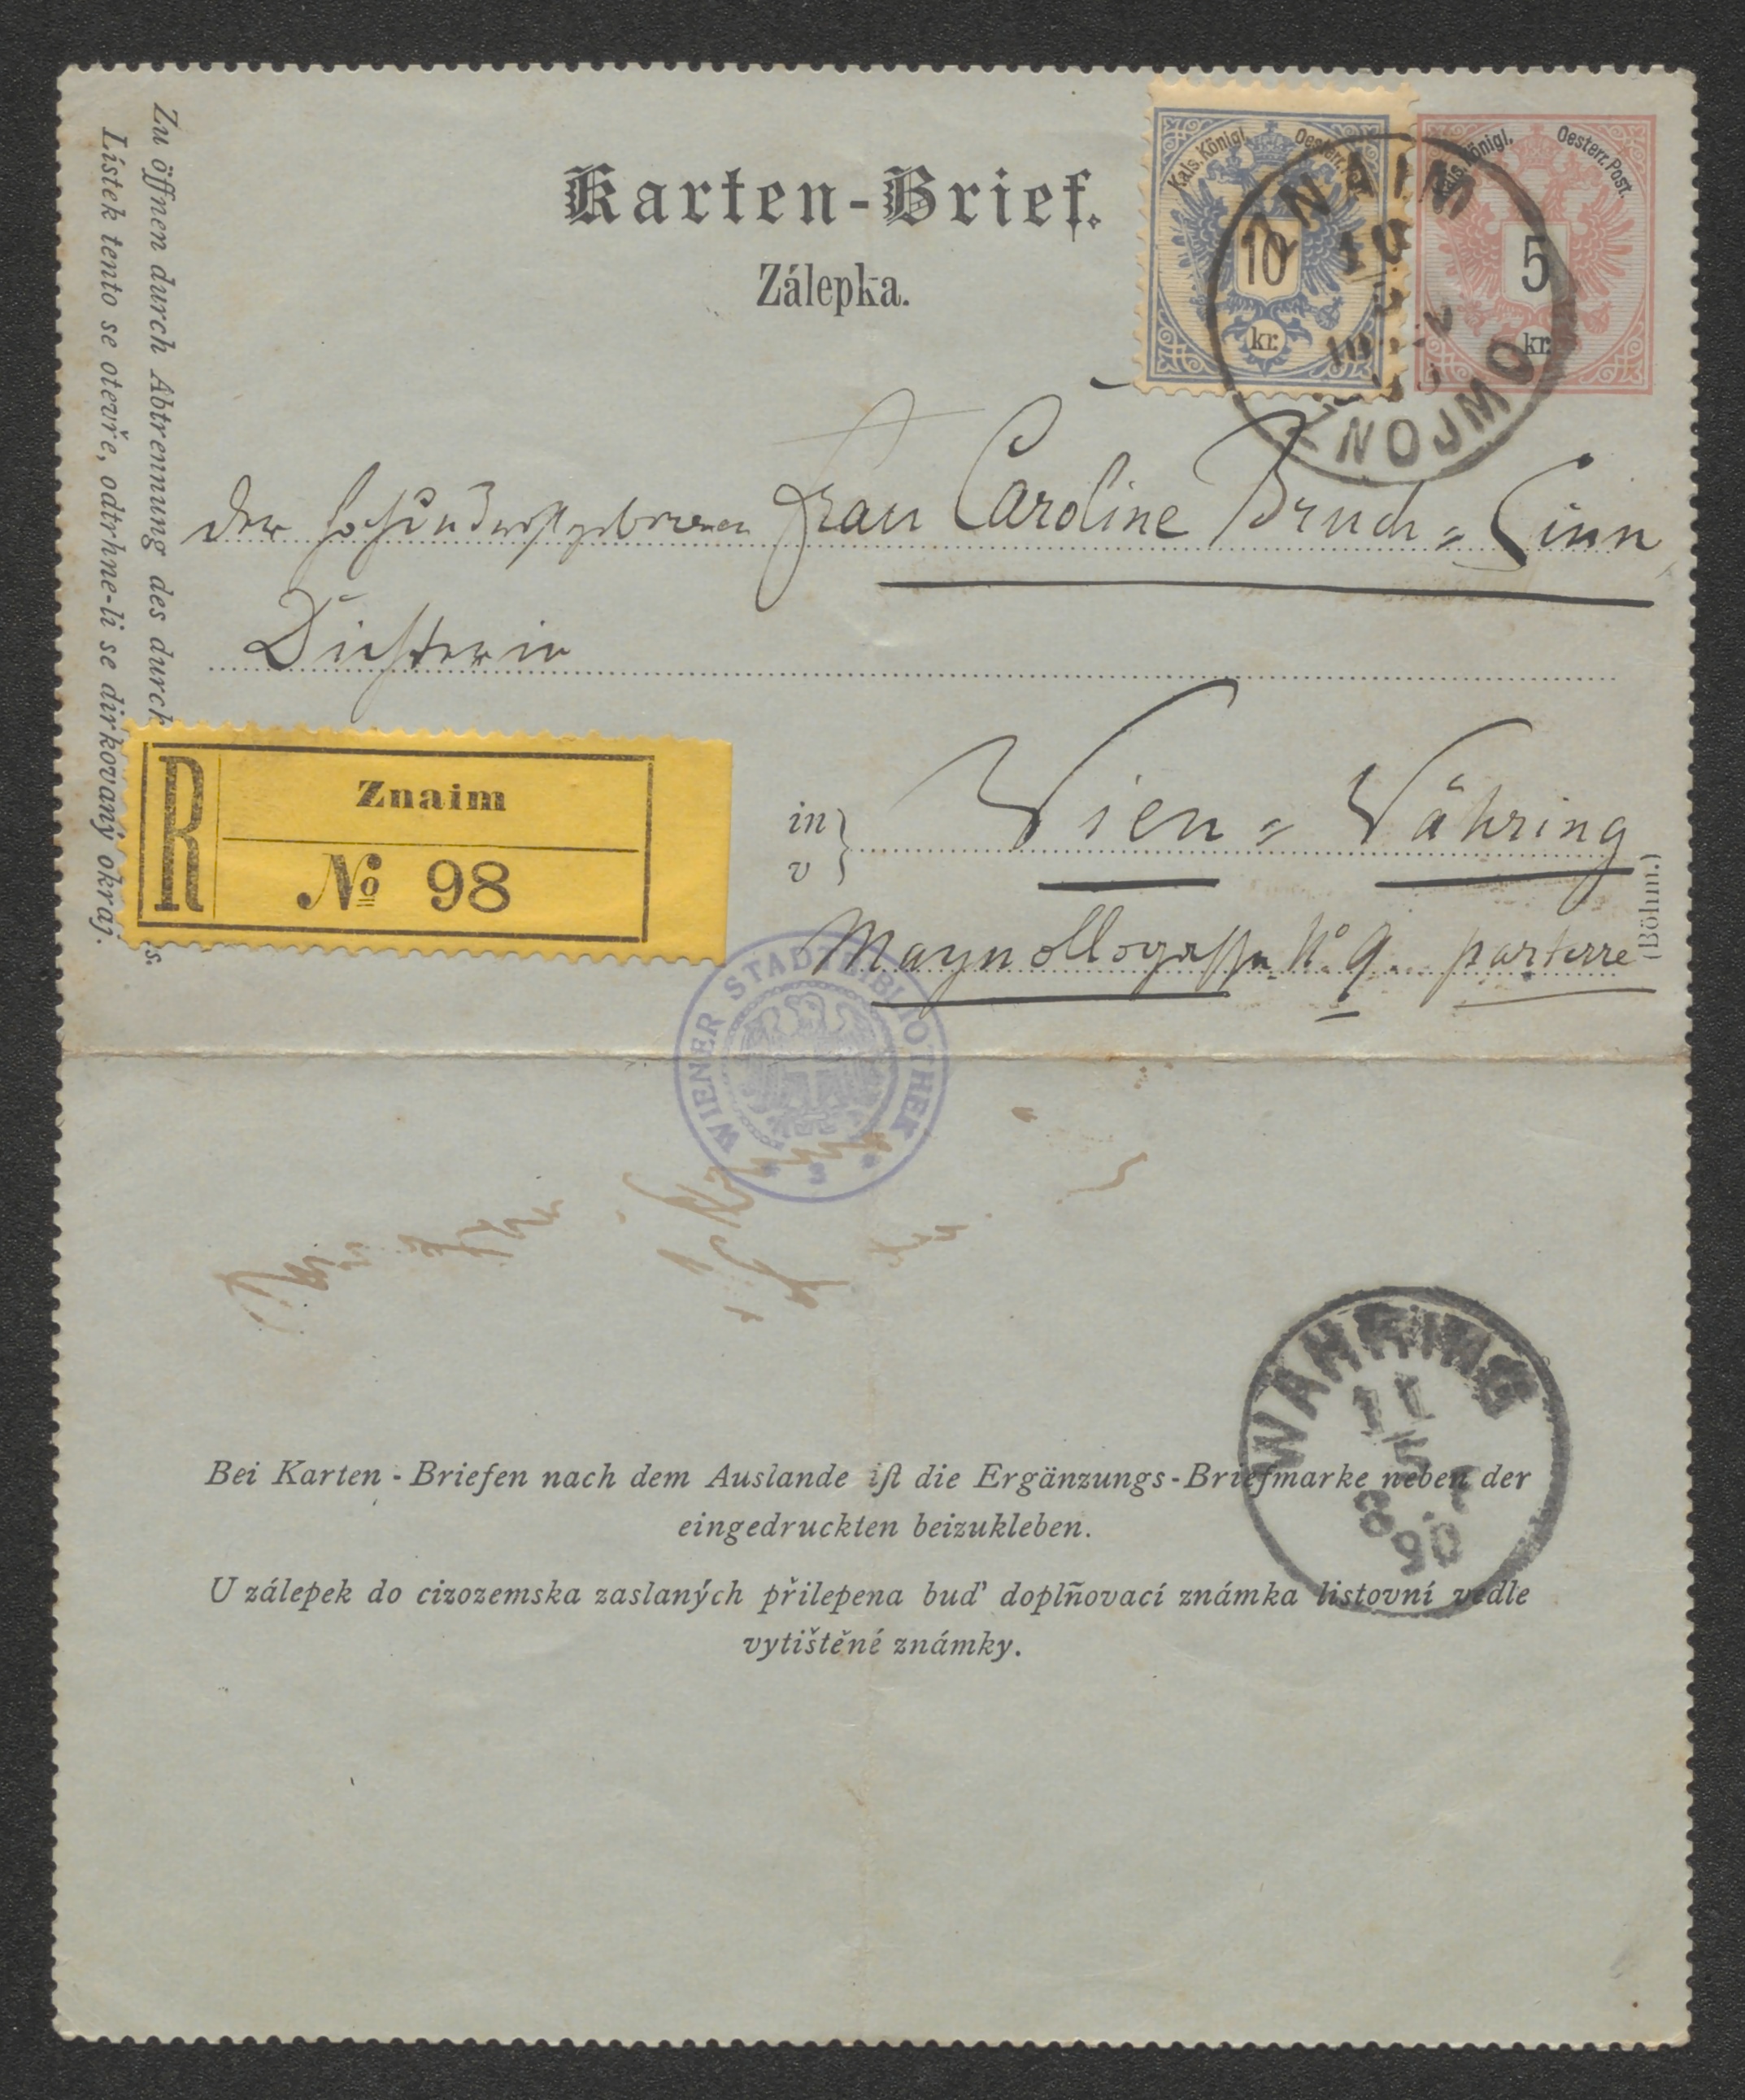 Karten-Brief.
Zálepka.
Kais. Königl. Oesterr. Post.
10
kr.
Kais. Königl. Oesterr. Post.
5
kr.
ZNAIM
10
5
ZNOJMO
Zu öffnen durch Abtrennung des durch
Lístek tento se otevře, odtrhne-li se dirkovaný okraj.
der hochundwohlgeborenen Frau Caroline Bruch=Sinn,
Dichterin
R
Znaim
№ 98
in
v
Wien = Währing
Maynollogasse No 9. parterre
(Böhm.)
WIENER STADTBIBLIOTHEK
WÄHRING
11
5
90
Bei Karten-Briefen nach dem Auslande iſt die Ergänzungs-Briefmarke neben der
eingedruckten beizukleben.
U zálepek do cizozemska zaslaných přilepena buď doplňovací známka listovní vedle
vytištěné známky.